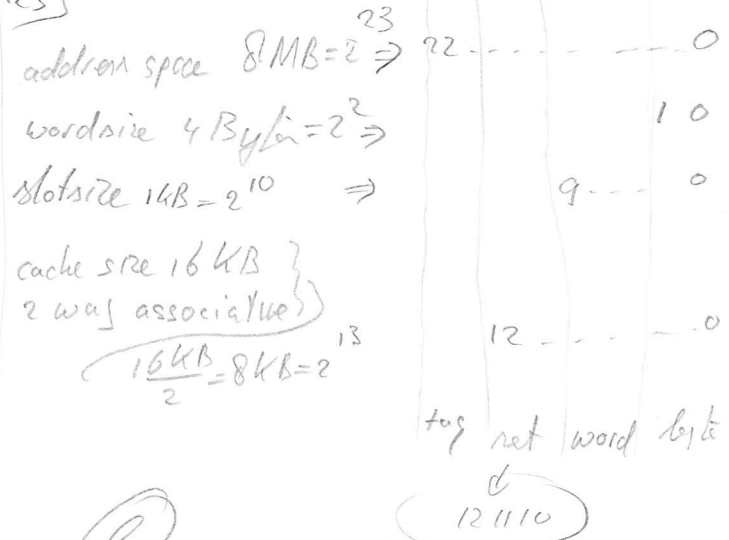 address space 8MB=2^23 ⇒ 22 . . . . . . . 0
wordsize 4 Byte=2^2 ⇒ 1 0
slotsize 1KB=2^10 ⇒ 9 . . . . 0
cache size 16KB
2 way associative
16KB/2=8KB=2^13 12 . . . . . . 0
tag set word byte
12 11 10